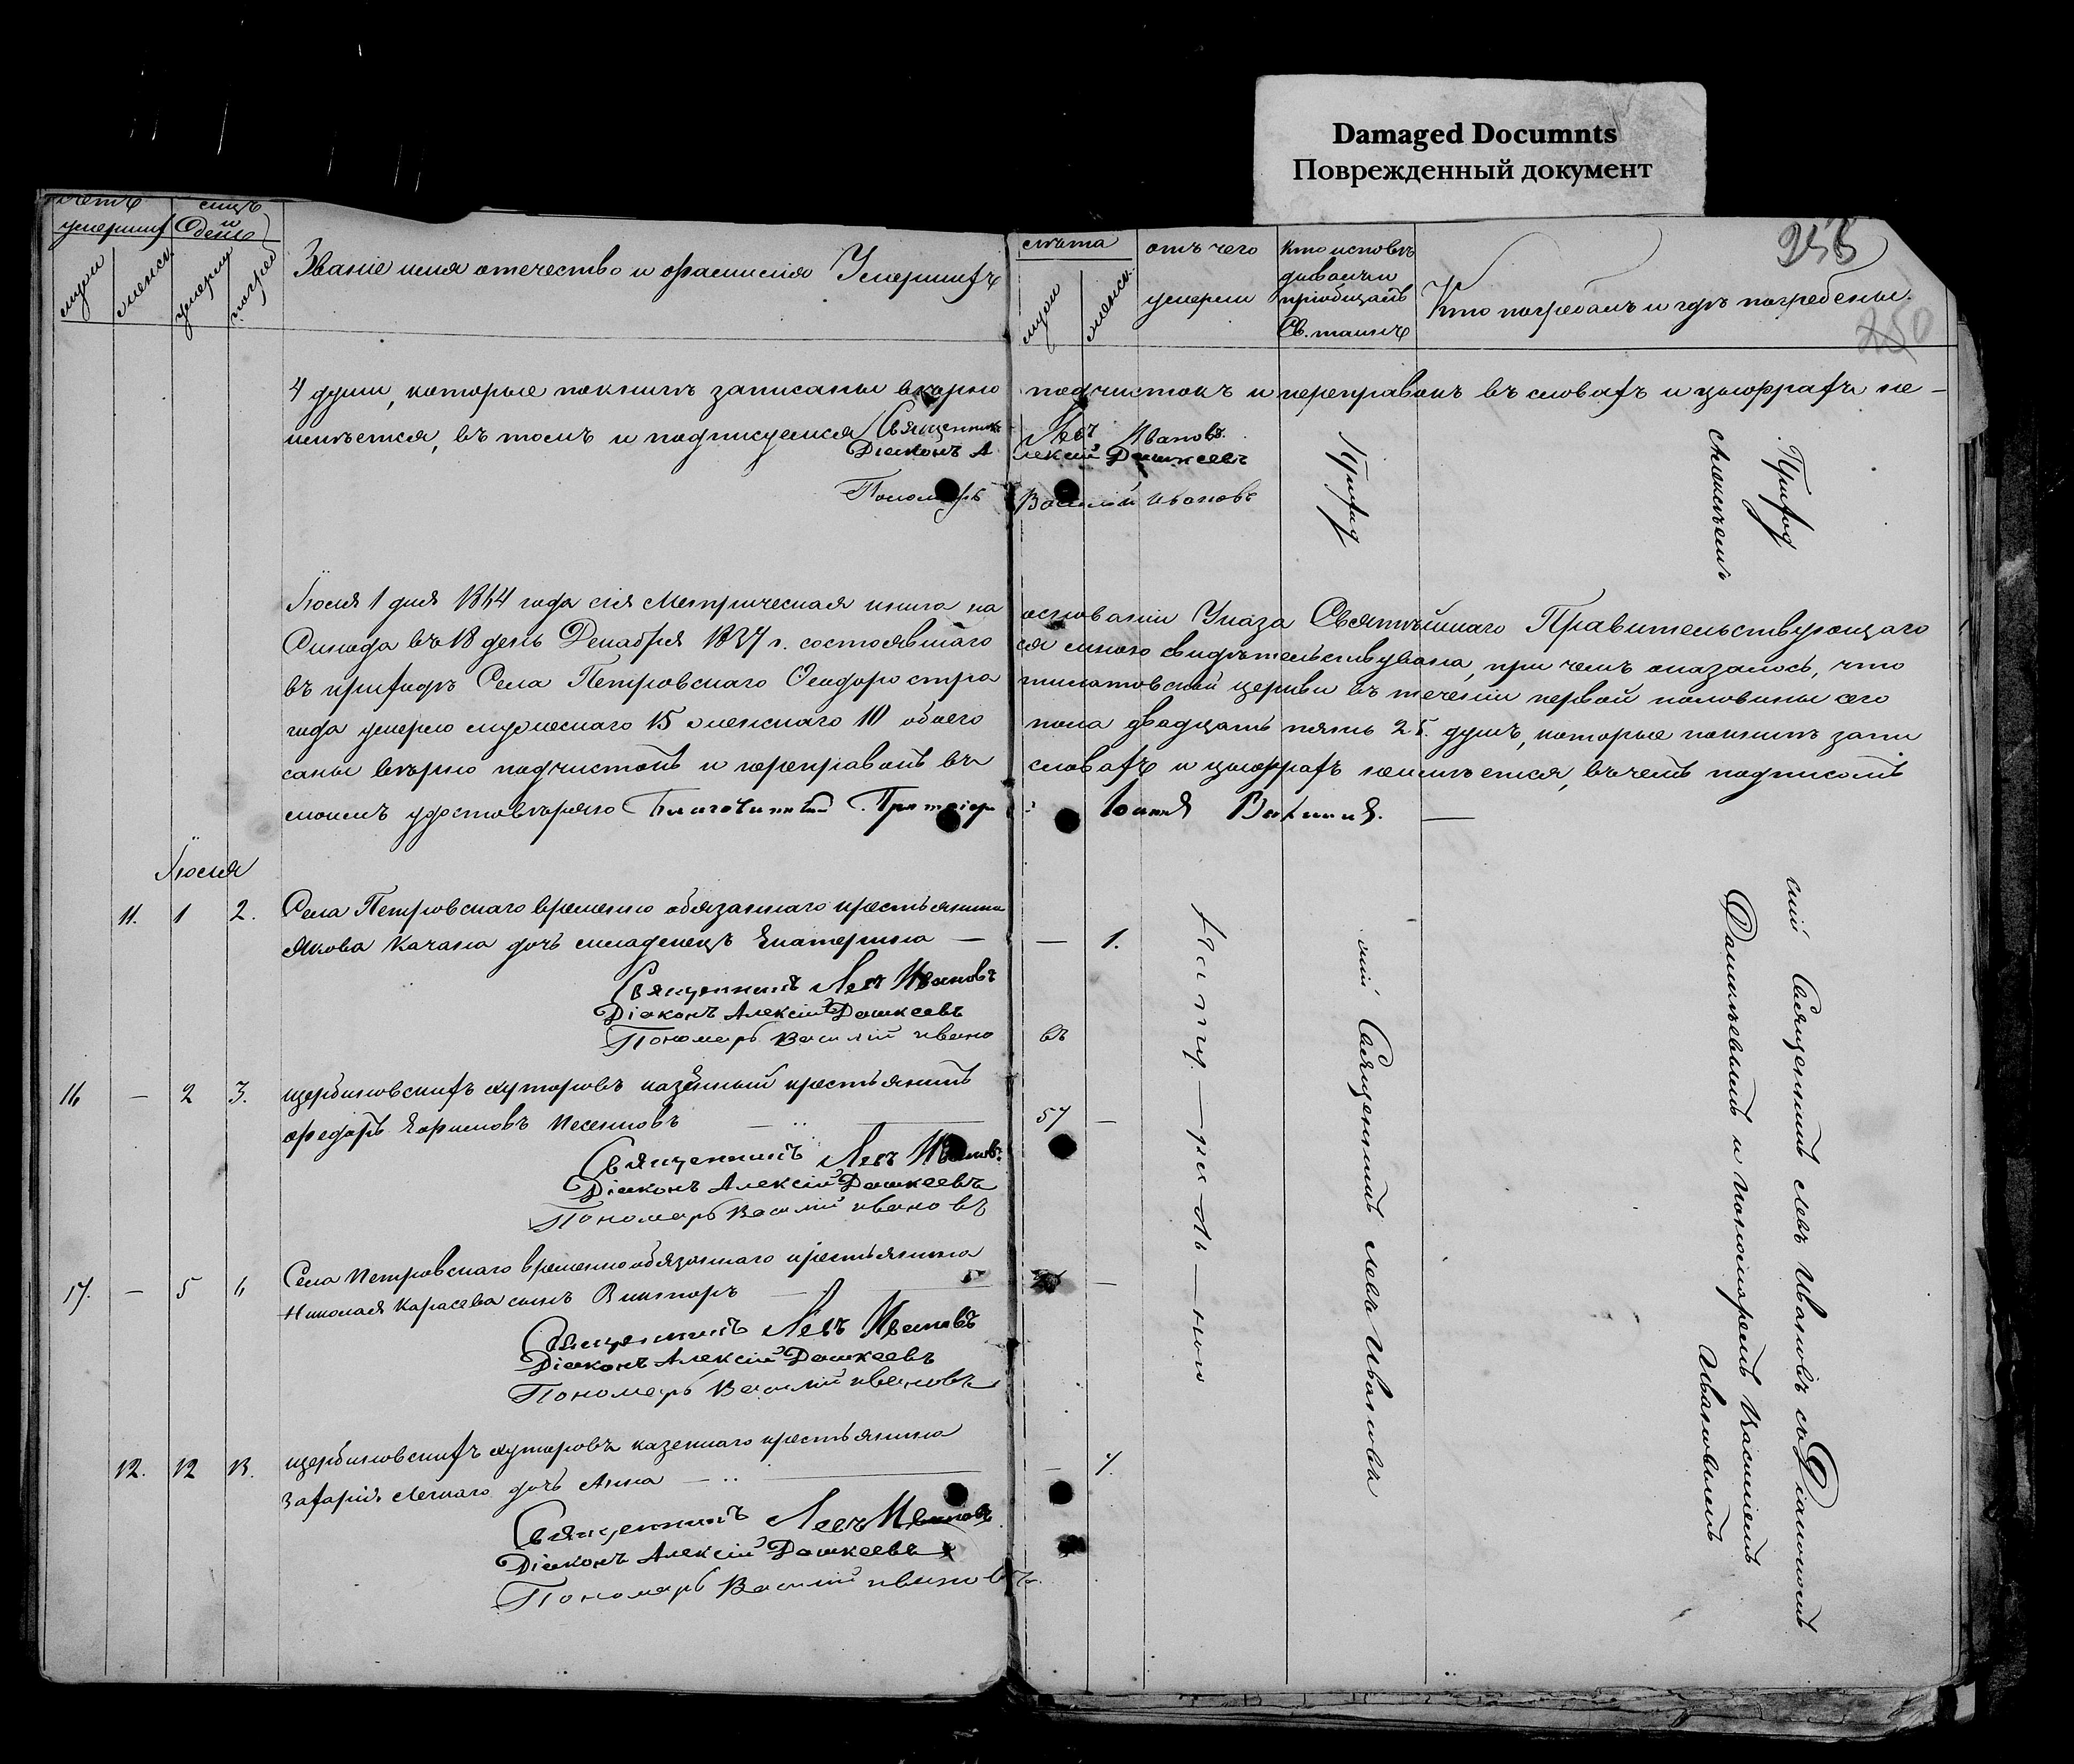 Damaged Documnts
Поврежденный документ
255
250
Звание имя отечество и фамилия Умершихъ
лѣта
отъ чего
умерли
Кто исповѣ
дывалъ и
приобщалъ
Св. таинъ
Кто погребалъ и гдѣ погребены.
4 души, которые покнигѣ записаны вѣрно подчистокъ и переправокъ въ словахъ и цыфрахъ не-
имѣется, въ томъ и подписуемся Священникъ Левъ Ивановъ.
Діаконъ Алексій Дашкеевъ
Пономарь Василій Ивановъ
Приход
Приход
Іюля 1 дня 1864 года сія Метрическая книга на основаніи Указа Святѣйшаго Правительствующаго
Синода въ 18 день Декабря 1837 г. состоявшаго ся мною свидѣтельствувана, при чемъ оказалось, что
въ приходѣ Села Петровскаго Феодоро стра тилатовской церкви въ теченіи первой половины сего
года умерло мужескаго 15 женскаго 10 обоего пола двадцать пять 25. душъ, которые покнигѣ запи
саны вѣрно подчистокъ и переправокъ въ словахъ и цыфрахъ неимѣется, въ чемъ подписомъ
моимъ удостовѣряю Благочинный
Іюля
11. 1 2. Села Петровскаго временно обязаннаго крестьянина
Якова Качана дочь младенецъ Екатерина — — 1.
Священникъ Левъ Ивановъ
Діаконъ Алексій Дашкеевъ
Пономарь Василій Ивановъ
16 — 2 3. щербиновскихъ хуторовъ казенный крестьянинъ
Федоръ Ефимовъ 57 —
Священникъ Левъ Ивановъ
Діаконъ Алексій Дашкеевъ
Пономарь Василій Ивановъ
17. — 5 6 Села Петровскаго временнообязаннаго крестьянина
Николая Карасева сынъ Викторъ — —
Священникъ Левъ Ивановъ
Діаконъ Алексій Дашкеевъ
Пономарь Василій Ивановъ
12. 12 13. щербиновскихъ хуторовъ казеннаго крестьянина
Захарія Легкаго дочь Анна — 7.
Священникъ Левъ Ивановъ
Діаконъ Алексій Дашкеевъ
Пономарь Василій Ивановъ
скій Священникъ Левъ Ивановъ
скій Священникъ Левъ Ивановъ съ Діакономъ
Дашкѣевымъ и пономаремъ Василіемъ
Ивановымъ